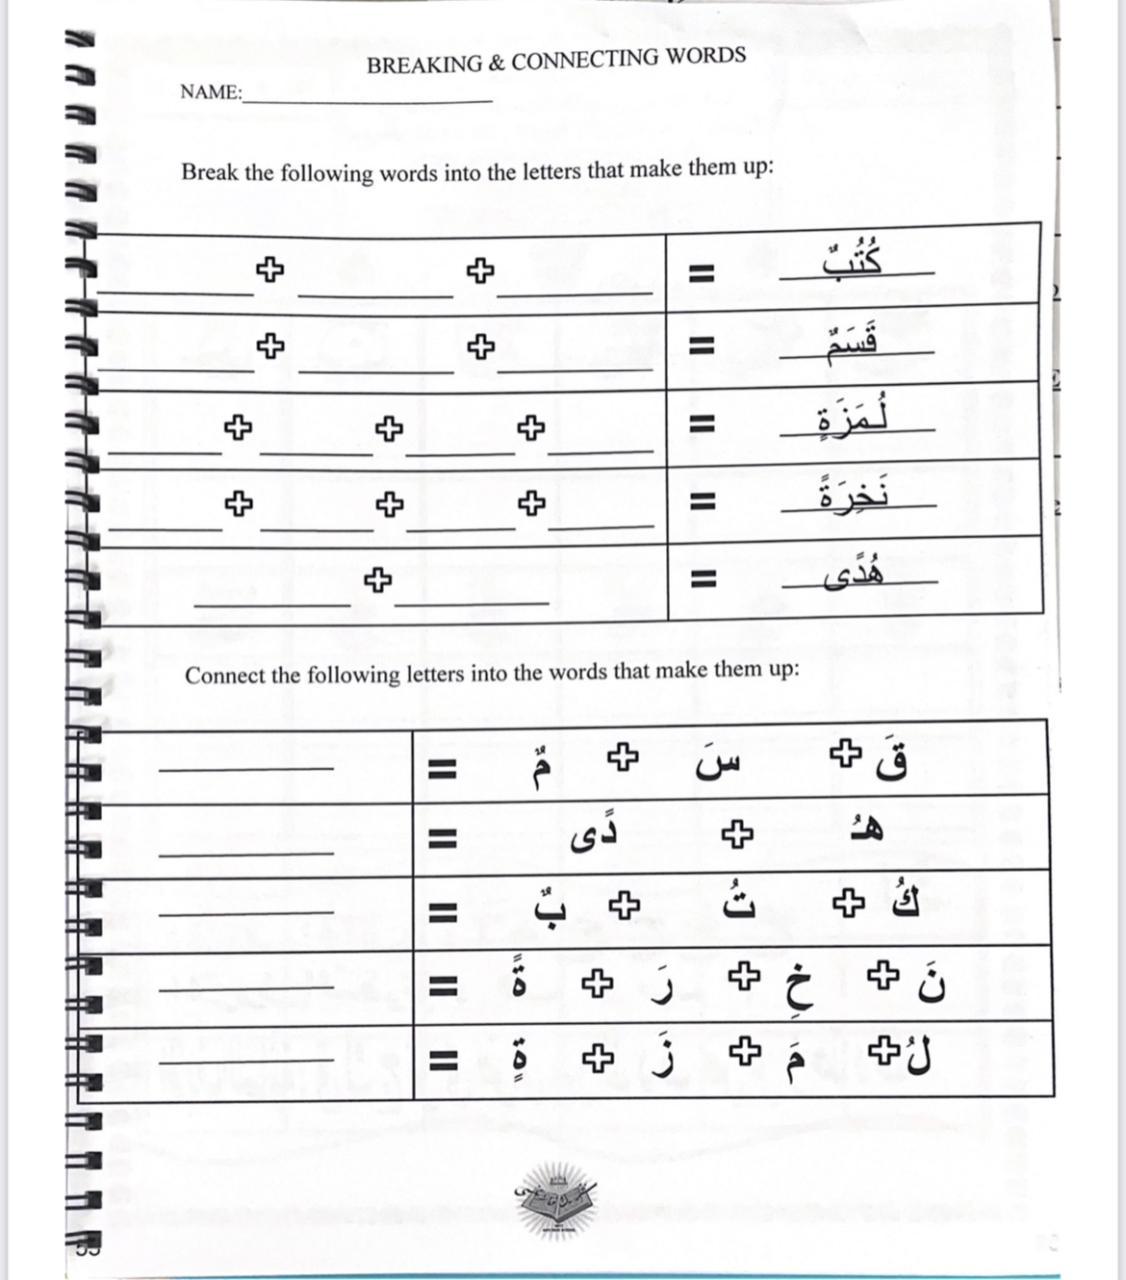 BREAKING & CONNECTING WORDS
NAME:
Break the following words into the letters that make them up:
كُتُبٌ = + +
قَسَمٌ = + +
لُمَزَةٍ = + + +
نَخِرَةً = + + +
هُدًى = +
Connect the following letters into the words that make them up:
قَ + سَ + مٌ =
هُـ + دًى =
كُ + تُ + بٌ =
نَ + خِ + رَ + ةً =
لُ + مَ + زَ + ةٍ =